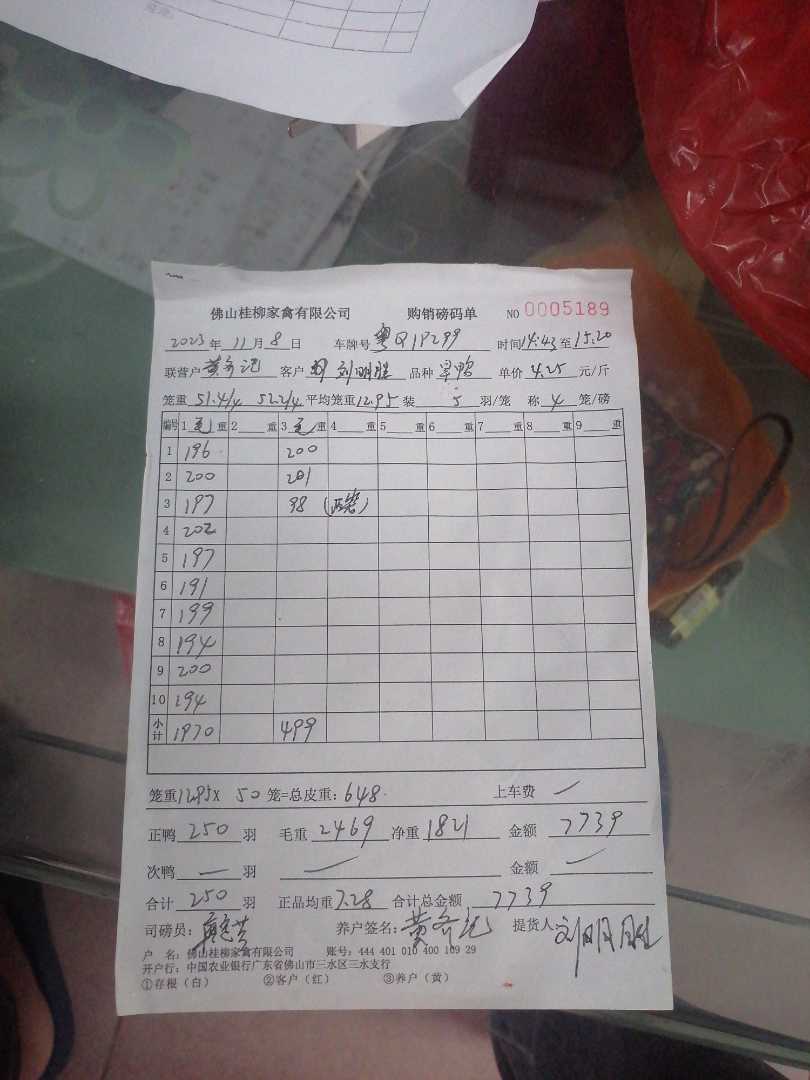 佛山桂柳家禽有限公司 购销磅码单 NO 0005189
2023 年 11 月 8 日 车牌号 粤Q1P299 时间 14:43 至 15:20
联营户 黄齐记 客户 刘明胜 品种 旱鸭 单价 4.25 元/斤
笼重 51.4/4 52.2/4 平均笼重 12.95 装 5 羽/笼 称 4 笼/磅
编号 1 毛 重 2 重 3 毛 重 4 重 5 重 6 重 7 重 8 重 9 重
1 196 200
2 200 201
3 197 98
4 202
5 197
6 191
7 199
8 194
9 200
10 194
小计 1970 499
笼重 12.95 X 50 笼=总皮重: 648 上车费 一
正鸭 250 羽 毛重 2469 净重 1821 金额 7739
次鸭 一 羽 一 金额 一
合计 250 羽 正品均重 7.28 合计总金额 7739
司磅员: 养户签名: 黄齐记 提货人: 刘明胜
户 名: 佛山桂柳家禽有限公司 账号: 444 401 010 400 109 29
开户行: 中国农业银行广东省佛山市三水区三水支行
①存根(白) ②客户(红) ③养户(黄)